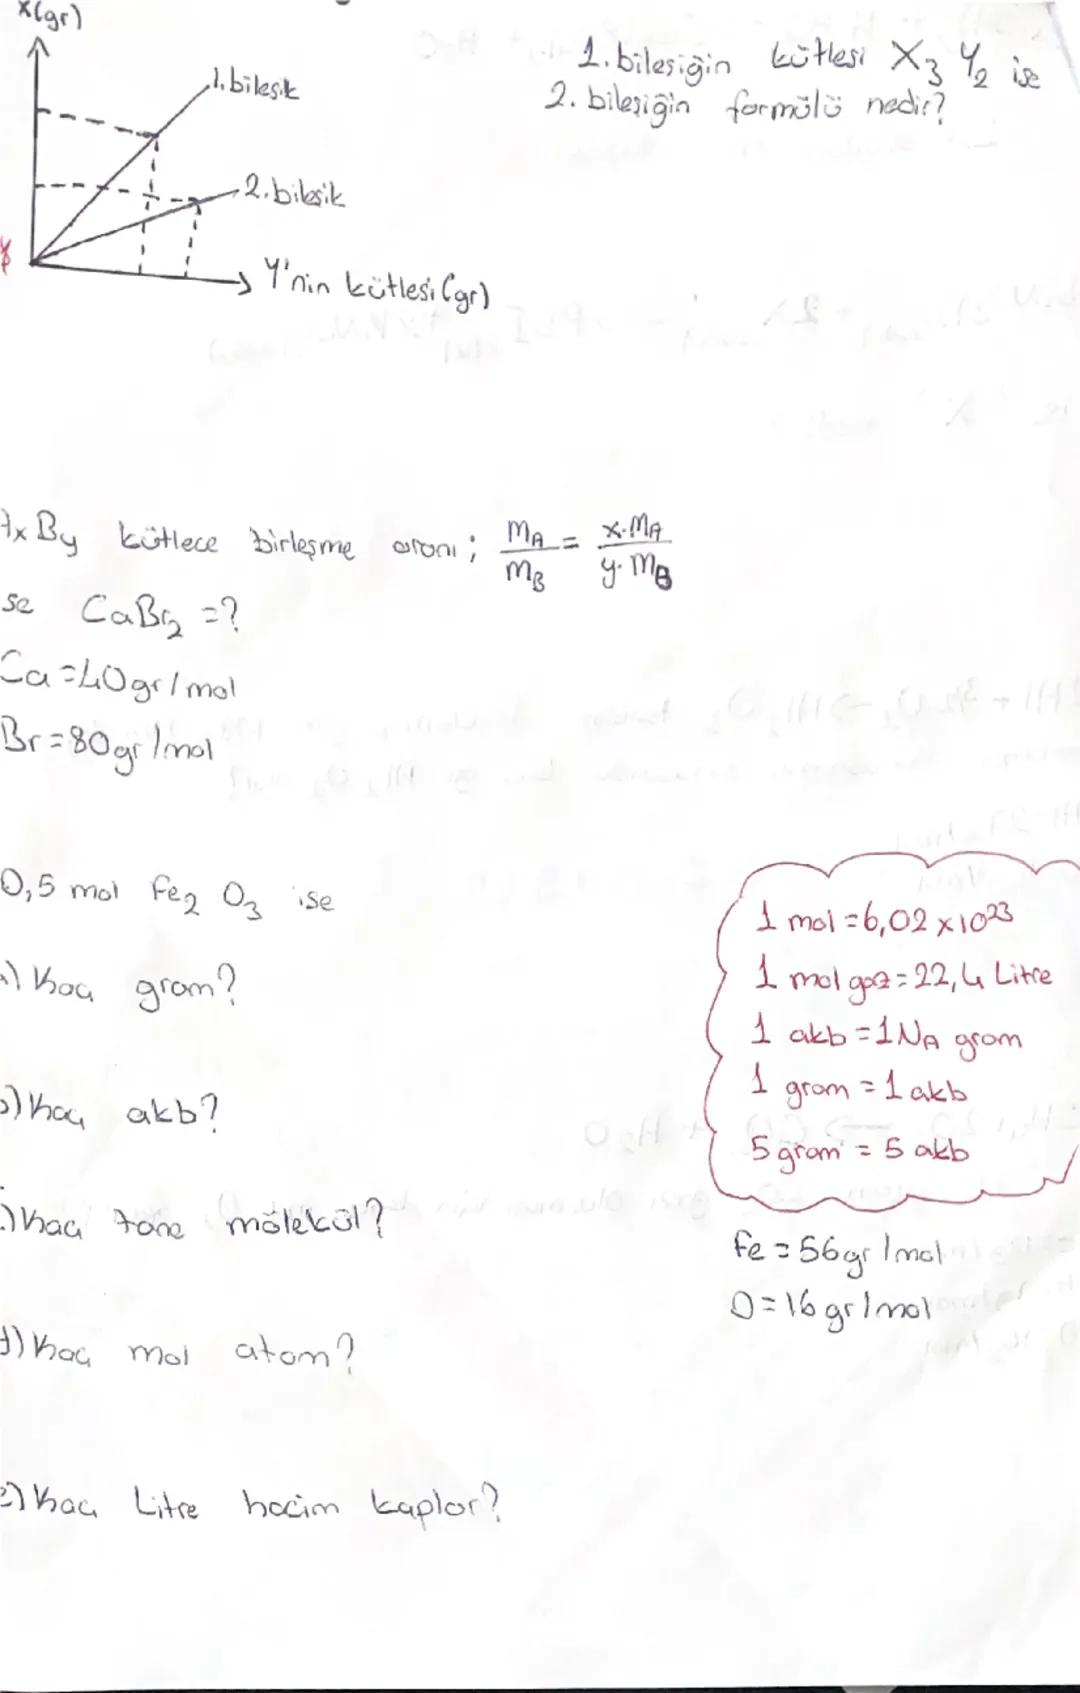 X(gr)
1. bileşik
2. bileşik
Y'nin kütlesi (gr)
1. bileşiğin kütlesi X₃ Y₂ ise
2. bileşiğin formülü nedir?
AxBy kütlece birleşme oranı; mA/mB = x.MA/y.MB
se CaBr₂ =?
Ca = 40 gr/mol
Br = 80 gr/mol
0,5 mol Fe₂ O₃ ise
a) Kaç gram?
b) Kaç akb?
c) Kaç tane mölekül?
d) Kaç mol atom?
e) Kaç Litre hacim kaplar?
1 mol = 6,02 x 10²³
1 mol gaz = 22,4 Litre
1 akb = 1NA gram
1 gram = 1 akb
5 gram = 5 akb
Fe = 56 gr/mol
O = 16 gr/mol